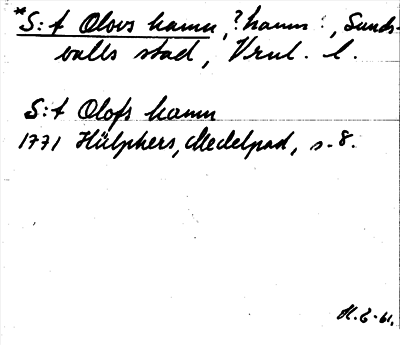 *S:t Olovs hamn, ?hamn:, Sunds-
valls stad, Vrnl. l.
S:t Olofs hamn
1771 Hülphers, Medelpad, s. 8.
H. E - 61.